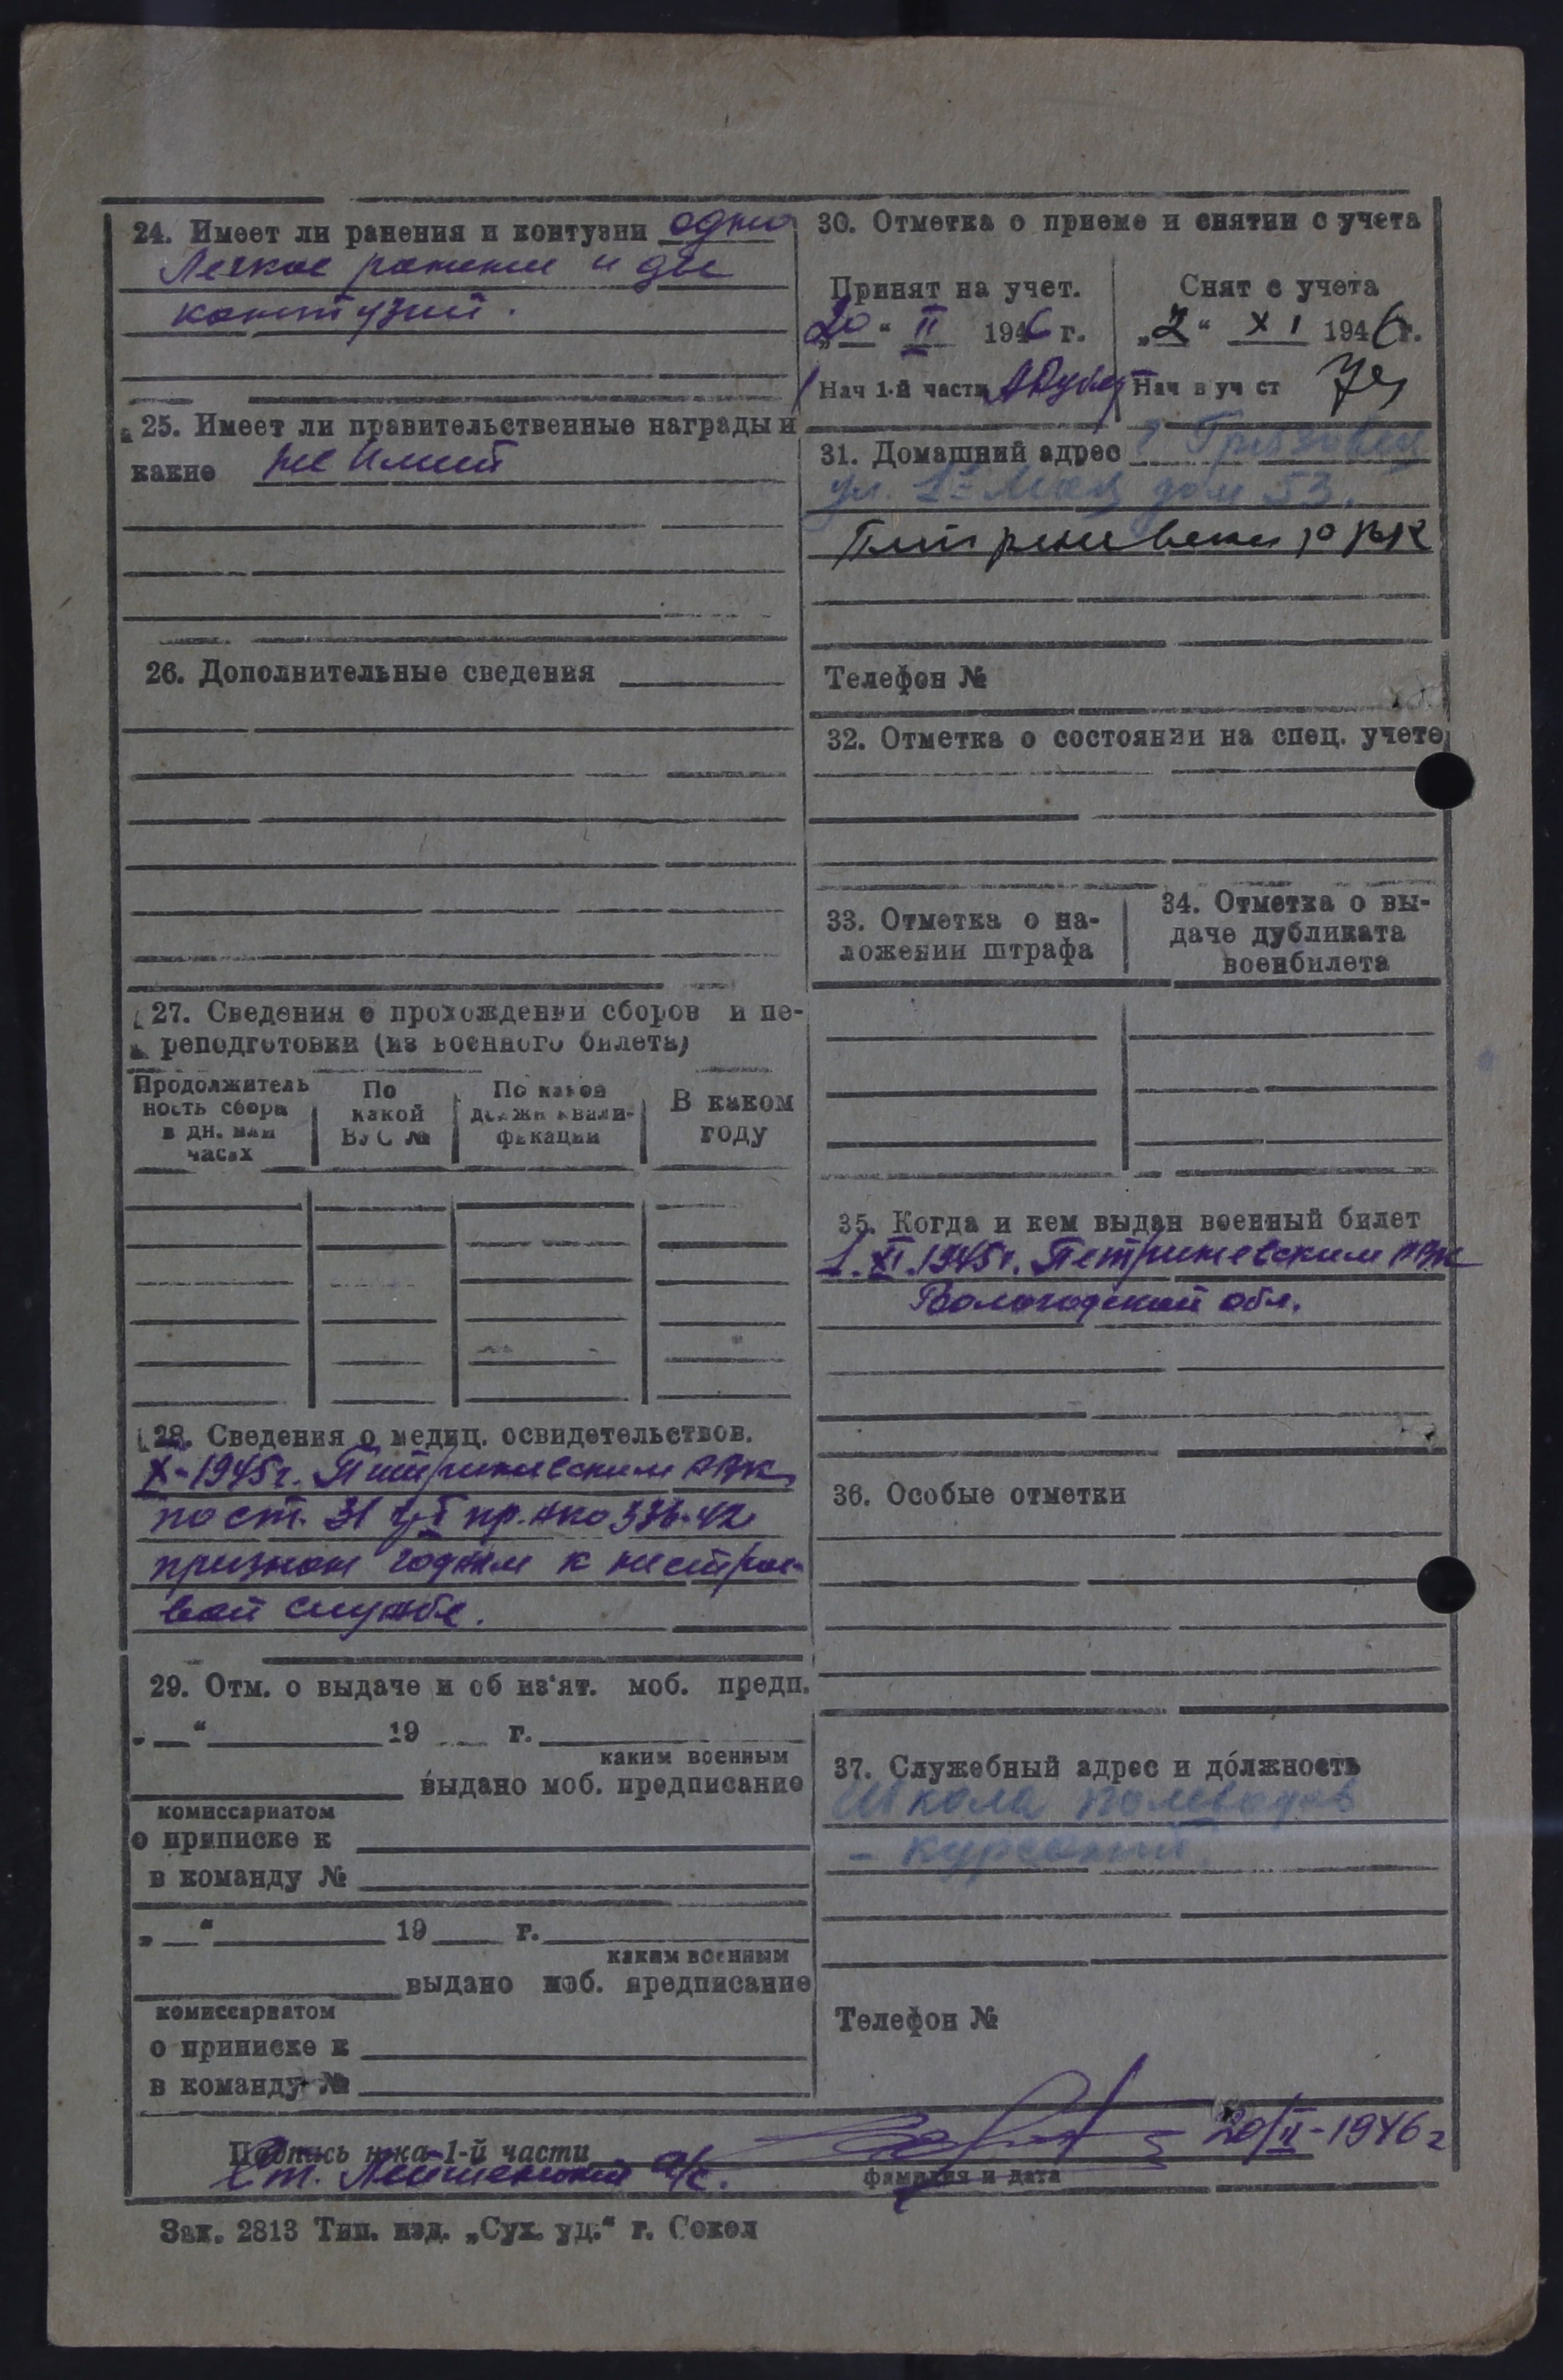 24. Имеет ли ранения и контузии одно
Легкое ранение и две
контузии.
25. Имеет ли правительственные награды и
какие не имеет
26. Дополнительные сведения
27. Сведения о прохождении сборов и пе-
реподготовки (из военного билета)
Продолжитель
ность сбора
в дн. или
часах
По
какой
ВУС №
По какой
должн квали-
фикации
В каком
году
28. Сведения о медиц. освидетельствов.
X-1945г. Петриневским РВК
по ст. 31 гр. I пр. НКО 336-42
признан годным к нестрое-
вой службе.
29. Отм. о выдаче и об из'ят. моб. предп.
„ “ 19 г.
каким военным
выдано моб. предписание
комиссариатом
о приписке к
в команду №
„ “ 19 г.
каким военным
выдано моб. предписание
комиссариатом
о приписке к
в команду №
30. Отметка о приеме и снятии с учета
Принят на учет.
„20“ II 1946 г.
Нач 1-й части
Снят с учета
„2“ XI 1946 г.
Нач в уч ст
31. Домашний адрес г Грязовец
ул. 1е Мая дом 53.
Петриневский РВК
Телефон №
32. Отметка о состоянии на спец. учете
33. Отметка о на-
ложении штрафа
34. Отметка о вы-
даче дубликата
военбилета
35. Когда и кем выдан военный билет
1.XI.1945г. Петриневским РВК
Вологодской обл.
36. Особые отметки
37. Служебный адрес и должность
Школа полеводов
- курсант.
Телефон №
Подпись н-ка 1-й части
Ст. Лейтенант а/с. 20/II-1946г
фамилия и дата
Зак. 2813 Тип. изд. „Сух. уц.“ г. Сокол